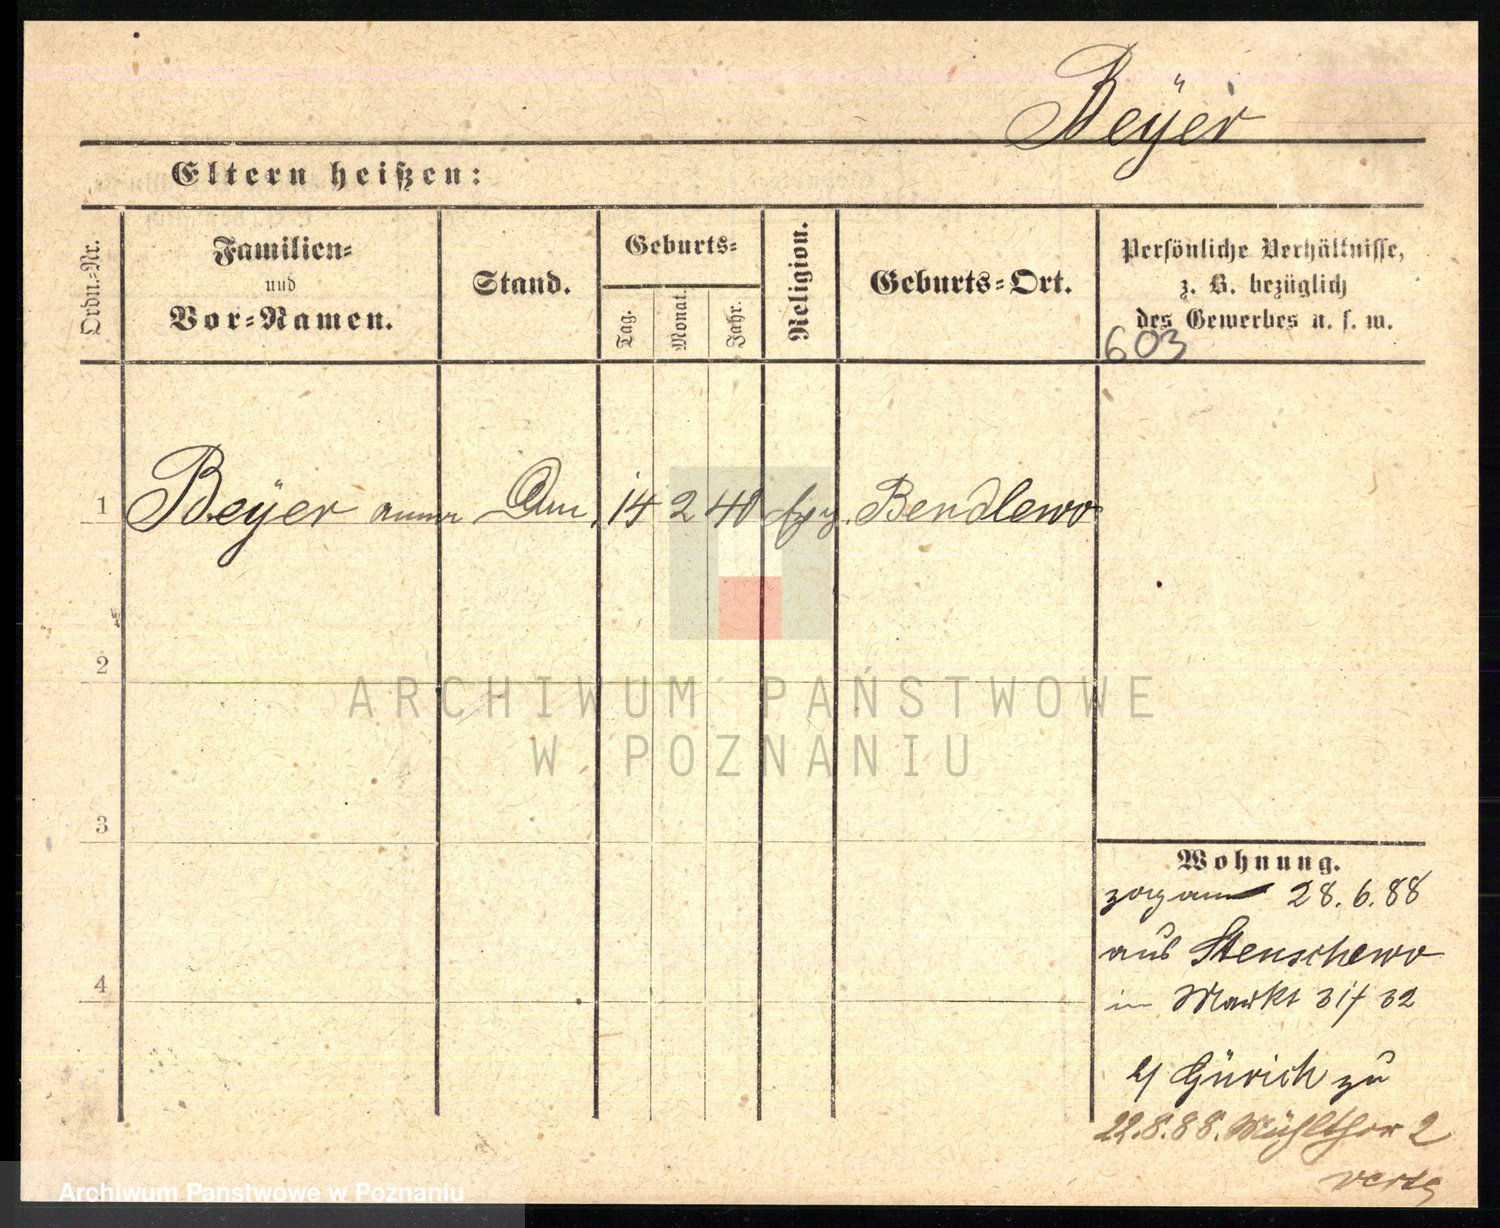 Beÿer
Eltern heißen:
Ordn.-Nr.
Familien-
und
Vor-Namen.
Stand.
Geburts-
Tag.
Monat.
Jahr.
Religion.
Geburts-Ort.
Persönliche Verhältnisse,
z. B. bezüglich
des Gewerbes u. s. w.
603
1 Beÿer anna 14 2 40 Bendlewo
2
3
4
Wohnung.
zog am 28.6.88
aus Stenschewo
in Markt 31/32
b/ Gürich zu
22.8.88. Mühlthor 2
ARCHIWUM PAŃSTWOWE
W POZNANIU
Archiwum Panstwowe w Poznaniu